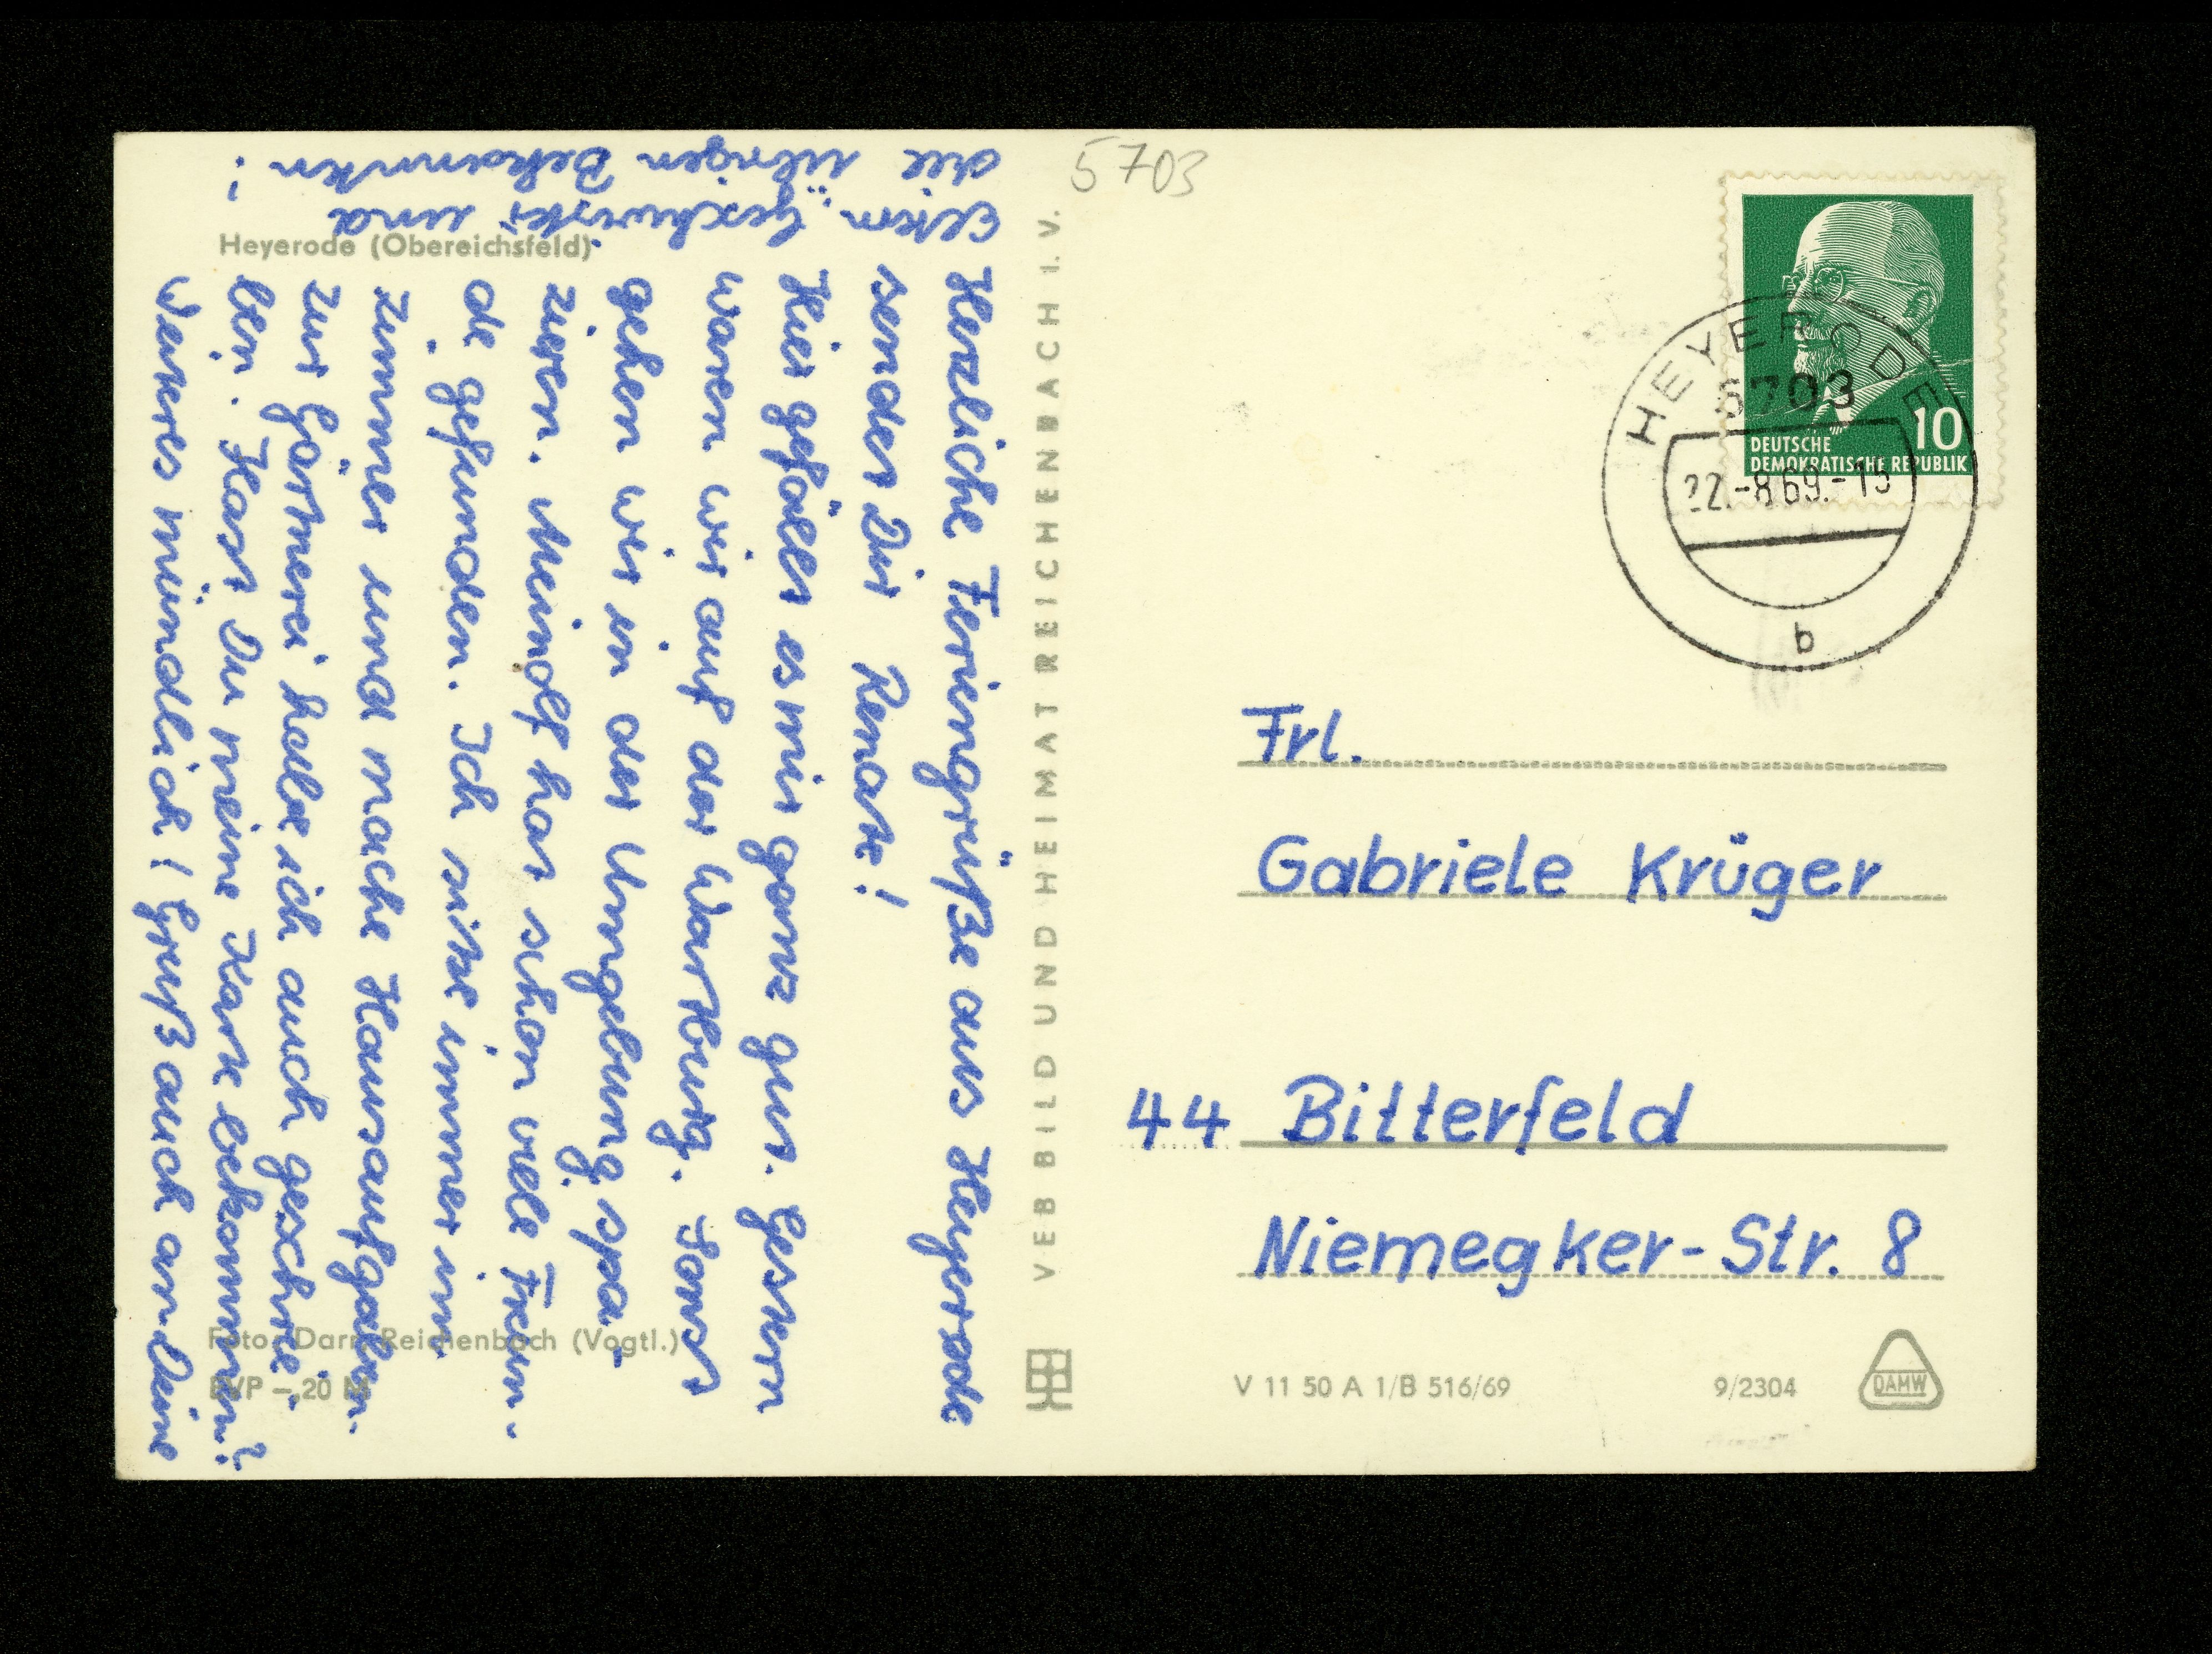 Herzliche Feriengrüße aus Heyerode
sendet Dir Renate!
Hier gefällt es mir ganz gut. Gestern
waren wir auf der Wartburg. Sonst
gehen wir in der Umgebung spa-
zieren. Meinolf hat schon viele Freun-
de gefunden. Ich sitze immer im
Zimmer und mache Hausaufgaben.
Zur Gärtnerei habe ich auch geschrie-
ben. Hast Du meine Karte bekommen?
Weiteres mündlich! Grüß auch an Deine
Eltern, Geschwister und
die übrigen Bekannten!
Heyerode (Obereichsfeld)
Foto: Darr, Reichenbach (Vogtl.)
EVP -,20 M
VEB BILD UND HEIMAT REICHENBACH I. V.
5703
DEUTSCHE
DEMOKRATISCHE REPUBLIK
10
HEYERODE
5703
22.-8.69.-15
b
Frl.
Gabriele Krüger
44 Bitterfeld
Niemegker-Str. 8
V 11 50 A 1/B 516/69
9/2304
DAMW